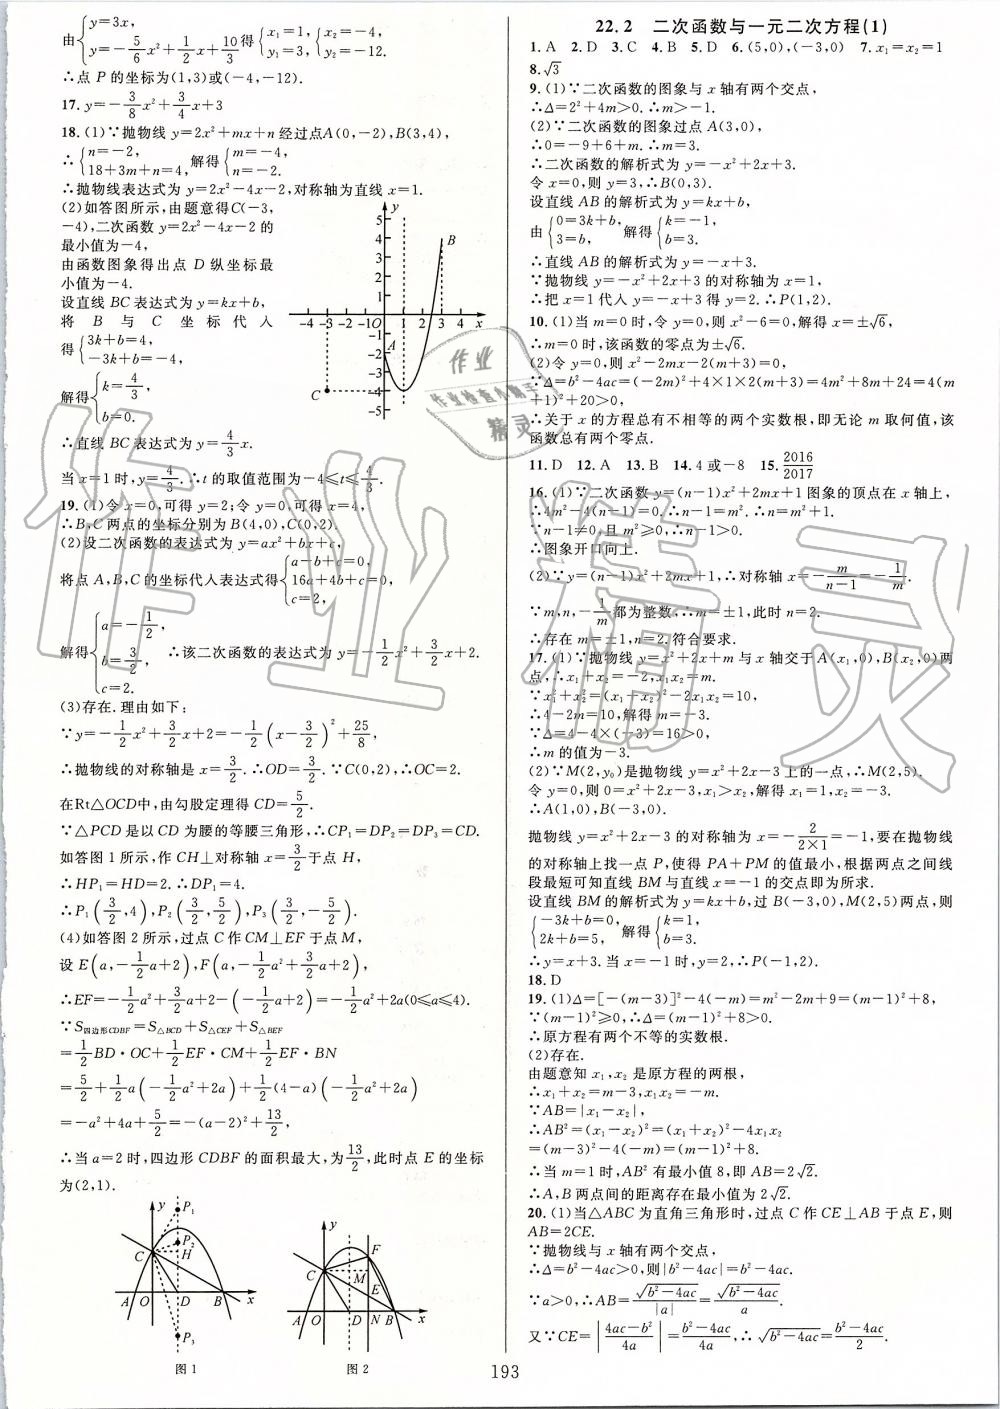 由{y=3x, y=-5/6x²+1/2x+10/3得{x₁=1, y₁=3, {x₂=-4, y₂=-12.
∴点 P 的坐标为(1,3)或(-4,-12).
17. y=-3/8x²+3/4x+3
18. (1)∵抛物线 y=2x²+mx+n 经过点A(0,-2),B(3,4),
∴{n=-2, 18+3m+n=4, 解得{m=-4, n=-2.
∴抛物线表达式为 y=2x²-4x-2,对称轴为直线 x=1.
(2)如答图所示,由题意得C(-3,
-4),二次函数 y=2x²-4x-2 的
最小值为-4,
由函数图象得出点 D 纵坐标最
小值为-4.
设直线 BC 表达式为 y=kx+b,
将 B 与 C 坐标代入
得{3k+b=4, -3k+b=-4,
解得{k=4/3, b=0.
∴直线 BC 表达式为 y=4/3x.
当 x=1时,y=4/3.∴t 的取值范围为-4≤t≤4/3.
19. (1)令 x=0,可得 y=2;令 y=0,可得 x=4,
∴B,C 两点的坐标分别为 B(4,0),C(0,2).
(2)设二次函数的表达式为 y=ax²+bx+c,
将点 A,B,C 的坐标代入表达式得{a-b+c=0, 16a+4b+c=0, c=2,
解得{a=-1/2, b=3/2, c=2. ∴该二次函数的表达式为 y=-1/2x²+3/2x+2.
(3)存在.理由如下:
∵y=-1/2x²+3/2x+2=-1/2(x-3/2)²+25/8,
∴抛物线的对称轴是 x=3/2.∴OD=3/2.∵C(0,2),∴OC=2.
在Rt△OCD中,由勾股定理得 CD=5/2.
∵△PCD是以 CD 为腰的等腰三角形,∴CP₁=DP₂=DP₃=CD.
如答图 1 所示,作 CH⊥对称轴 x=3/2于点 H,
∴HP₁=HD=2.∴DP₁=4.
∴P₁(3/2,4),P₂(3/2,5/2),P₃(3/2,-5/2).
(4)如答图 2 所示,过点 C 作 CM⊥EF 于点 M,
设 E(a,-1/2a+2),F(a,-1/2a²+3/2a+2),
∴EF=-1/2a²+3/2a+2-(-1/2a+2)=-1/2a²+2a(0≤a≤4).
∵S四边形CDBF=S△BCD+S△CEF+S△BEF
=1/2BD·OC+1/2EF·CM+1/2EF·BN
=5/2+1/2a(-1/2a²+2a)+1/2(4-a)(-1/2a²+2a)
=-a²+4a+5/2=-(a-2)²+13/2,
∴当 a=2时,四边形 CDBF 的面积最大,为13/2,此时点 E 的坐标
为(2,1).
图 1 图 2
22.2 二次函数与一元二次方程(1)
1. A 2. D 3. C 4. B 5. D 6. (5,0),(-3,0) 7. x₁=x₂=1
8. √3
9. (1)∵二次函数的图象与 x 轴有两个交点,
∴Δ=2²+4m>0.∴m>-1.
(2)∵二次函数的图象过点 A(3,0),
∴0=-9+6+m.∴m=3.
∴二次函数的解析式为 y=-x²+2x+3.
令 x=0,则 y=3,∴B(0,3).
设直线 AB 的解析式为 y=kx+b,
由{0=3k+b, 3=b, 解得{k=-1, b=3.
∴直线 AB 的解析式为 y=-x+3.
∵抛物线 y=-x²+2x+3 的对称轴为 x=1,
∴把 x=1代入 y=-x+3 得 y=2.∴P(1,2).
10. (1)当 m=0时,令 y=0,则 x²-6=0,解得 x=±√6,
∴m=0时,该函数的零点为±√6.
(2)令 y=0,则 x²-2mx-2(m+3)=0,
∵Δ=b²-4ac=(-2m)²+4×1×2(m+3)=4m²+8m+24=4(m
+1)²+20>0,
∴关于 x 的方程总有不相等的两个实数根,即无论 m 取何值,该
函数总有两个零点.
11. D 12. A 13. B 14. 4 或-8 15. 2016/2017
16. (1)∵二次函数 y=(n-1)x²+2mx+1 图象的顶点在 x 轴上,
∴4m²-4(n-1)=0.∴n-1=m².∴n=m²+1.
∵n-1≠0,且 m²≥0,∴n-1>0.
∴图象开口向上.
(2)∵y=(n-1)x²+2mx+1,∴对称轴 x=-m/(n-1)=-1/m.
∵m,n,-1/m都为整数,∴m=±1,此时 n=2.
∴存在 m=±1,n=2.符合要求.
17. (1)∵抛物线 y=x²+2x+m 与 x 轴交于A(x₁,0),B(x₂,0)两
点,∴x₁+x₂=-2,x₁x₂=m.
∵x₁²+x₂²=(x₁+x₂)²-2x₁x₂=10,
∴4-2m=10,解得 m=-3.
∵Δ=4-4×(-3)=16>0,
∴m 的值为-3.
(2)∵M(2,y₀)是抛物线 y=x²+2x-3 上的一点,∴M(2,5).
令 y=0,则 0=x²+2x-3,x₁>x₂,解得 x₁=1,x₂=-3.
∴A(1,0),B(-3,0).
抛物线 y=x²+2x-3 的对称轴为 x=-2/(2×1)=-1,要在抛物线
的对称轴上找一点 P,使得 PA+PM 的值最小,根据两点之间线
段最短可知直线 BM 与直线 x=-1 的交点即为所求.
设直线 BM 的解析式为 y=kx+b,过 B(-3,0),M(2,5)两点,则
{-3k+b=0, 2k+b=5, 解得{k=1, b=3.
∴y=x+3.当 x=-1时,y=2,∴P(-1,2).
18. D
19. (1)Δ=[-(m-3)]²-4(-m)=m²-2m+9=(m-1)²+8,
∵(m-1)²≥0,∴(m-1)²+8>0.
∴原方程有两个不等的实数根.
(2)存在.
由题意知 x₁,x₂ 是原方程的两根,
∴x₁+x₂=m-3,x₁x₂=-m.
∵AB=|x₁-x₂|,
∴AB²=(x₁-x₂)²=(x₁+x₂)²-4x₁x₂
=(m-3)²-4(-m)=(m-1)²+8.
∴当 m=1时,AB² 有最小值 8,即 AB=2√2.
∴A,B 两点间的距离存在最小值为 2√2.
20. (1)当△ABC 为直角三角形时,过点 C 作 CE⊥AB 于点 E,则
AB=2CE.
∵抛物线与 x 轴有两个交点,
∴Δ=b²-4ac>0,则|b²-4ac|=b²-4ac.
∵a>0,∴AB=√(b²-4ac)/|a|=√(b²-4ac)/a.
又∵CE=|(4ac-b²)/4a|=(b²-4ac)/4a,∴√(b²-4ac)=(b²-4ac)/2.
193